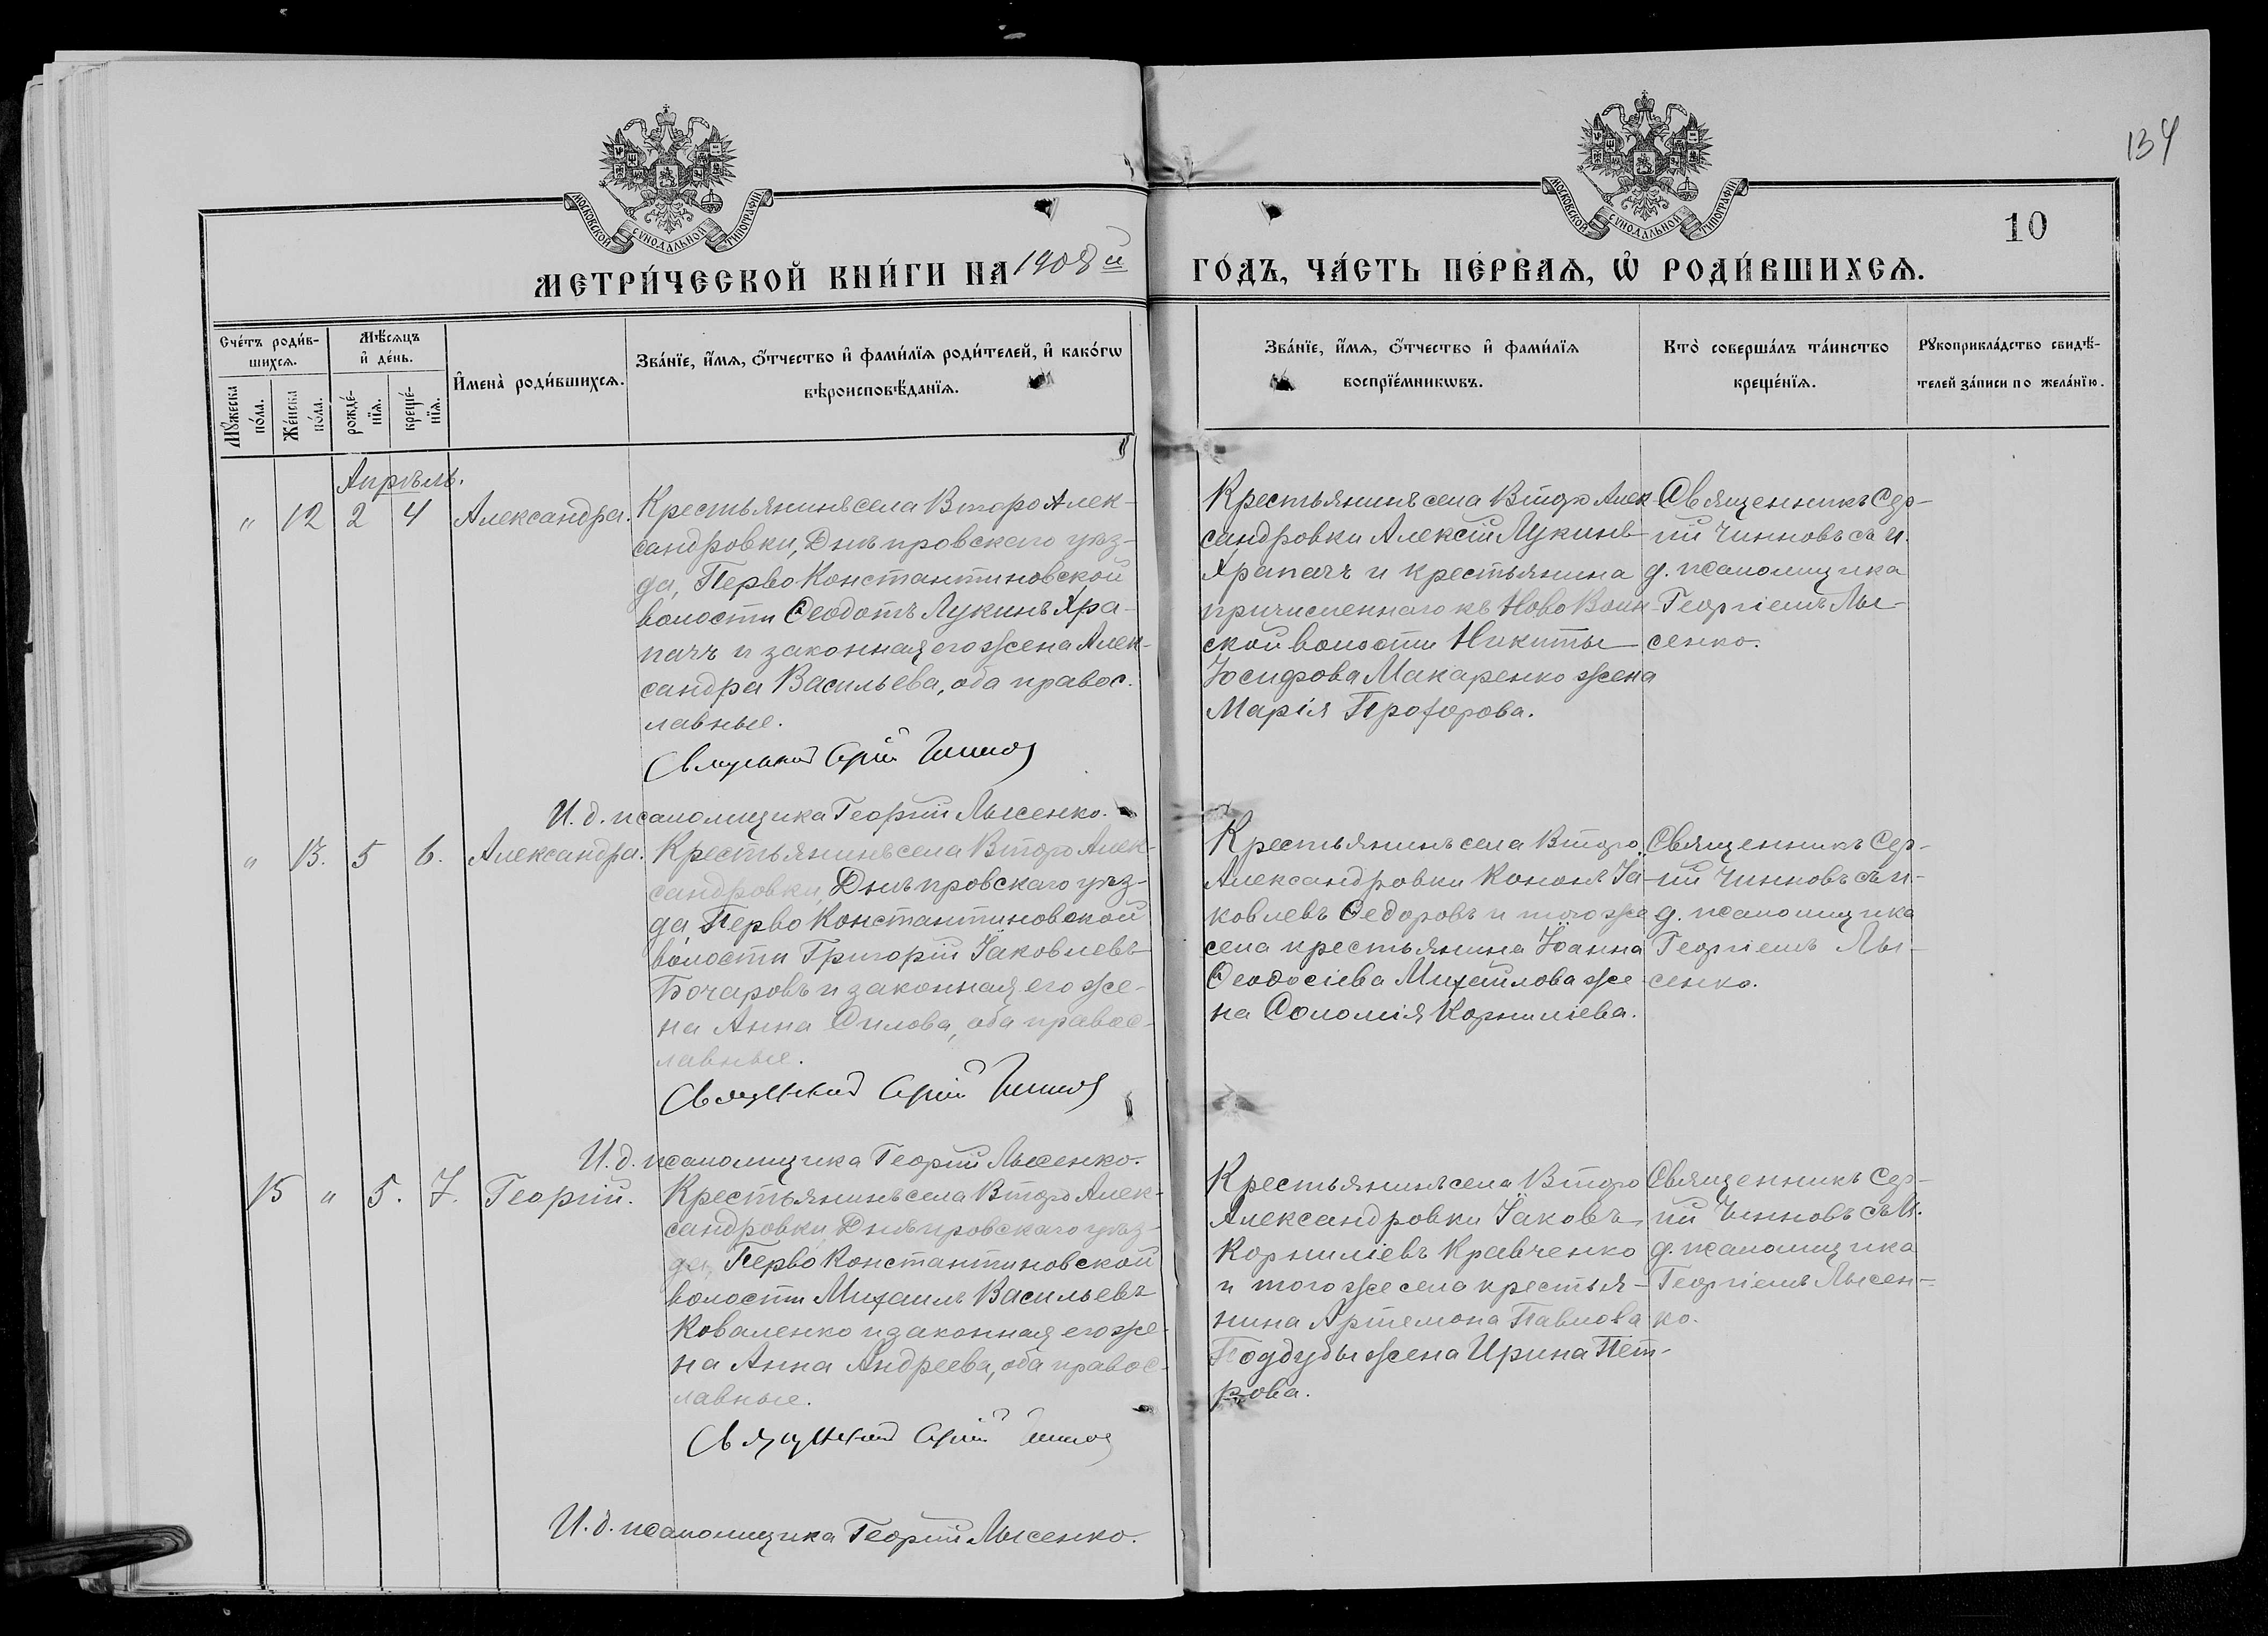 134
10
МОСКОВСКОЙ СѴНОДАЛЬНОЙ ТИПОГРАФІИ
МОСКОВСКОЙ СѴНОДАЛЬНОЙ ТИПОГРАФІИ
МЕТРИ́ЧЕСКОЙ КНИ́ГИ НА 1908 й
ГО́ДЪ, ЧА́СТЬ ПЕ́РВАѦ, Ѡ҆ РОДИ́ВШИХСѦ.
Сче́тъ роди́в-
шихсѧ.
Мꙋ́жеска по́ла.
Же́нска по́ла.
Мѣ́сѧцъ
и҆ де́нь.
рожде́-
нїѧ.
креще́-
нїѧ.
И҆мена̀ роди́вшихсѧ.
Зва́нїе, и҆́мѧ, ѻ҆́тчество и҆ фами́лїѧ роди́телей, и҆ како́гѡ
вѣроисповѣ́данїѧ.
Зва́нїе, и҆́мѧ, ѻ҆́тчество и҆ фами́лїѧ
воспрїе́мникѡвъ.
Кто̀ соверша́лъ та́инство
креще́нїѧ.
Рꙋкоприкла́дство свидѣ́-
телей за́писи по жела́нїю.
Апрѣль.
" 12 2 4 Александра.
Крестьянинъ села Второ Алек-
сандровки, Днѣпровскаго уѣз-
да, Перво Константиновской
волости Ѳеодотъ Лукинъ Хра-
пачъ и законная его жена Алек-
сандра Васильева, оба правос-
лавные.
Священникъ Сергій Чинновъ
И. д. псаломщика Георгій Лысенко.
Крестьянинъ села Второ Алек-
сандровки Алексій Лукинъ
Храпачъ и крестьянина
причисленнаго къ Ново Воин-
ской волости Никиты
Іосифова Макаренко жена
Марія Прохорова.
Священникъ Сер-
гій Чинновъ съ и.
д. псаломщика
Георгіемъ Лы-
сенко.
" 13. 5 6. Александра.
Крестьянинъ села Второ Алек-
сандровки, Днѣпровскаго уѣз-
да, Перво Константиновской
волости Григорій Іаковлевъ
Бочаровъ и законная его же-
на Анна Силова, оба правос-
лавные.
Священникъ Сергій Чинновъ
И. д. псаломщика Георгій Лысенко.
Крестьянинъ села Второ
Александровки Кононъ Іа-
ковлевъ Ѳедоровъ и того же
села крестьянина Іоанна
Ѳеодосіева Михайлова же-
на Соломія Корниліева.
Священникъ Сер-
гій Чинновъ съ и.
д. псаломщика
Георгіемъ Лы-
сенко.
15 " 5. 7. Георгій.
Крестьянинъ села Второ Алек-
сандровки, Днѣпровскаго уѣз-
да, Перво Константиновской
волости Михаилъ Васильевъ
Коваленко и законная его же-
на Анна Андреева, оба правос-
лавные.
Священникъ Сергій Чинновъ
И. д. псаломщика Георгій Лысенко.
Крестьянинъ села Второ
Александровки Іаковъ
Корниліевъ Кравченко
и того же села крестья-
нина Артемона Павлова
Поддубы жена Ирина Пет-
рова.
Священникъ Сер-
гій Чинновъ съ И.
д. псаломщика
Георгіемъ Лысен-
ко.